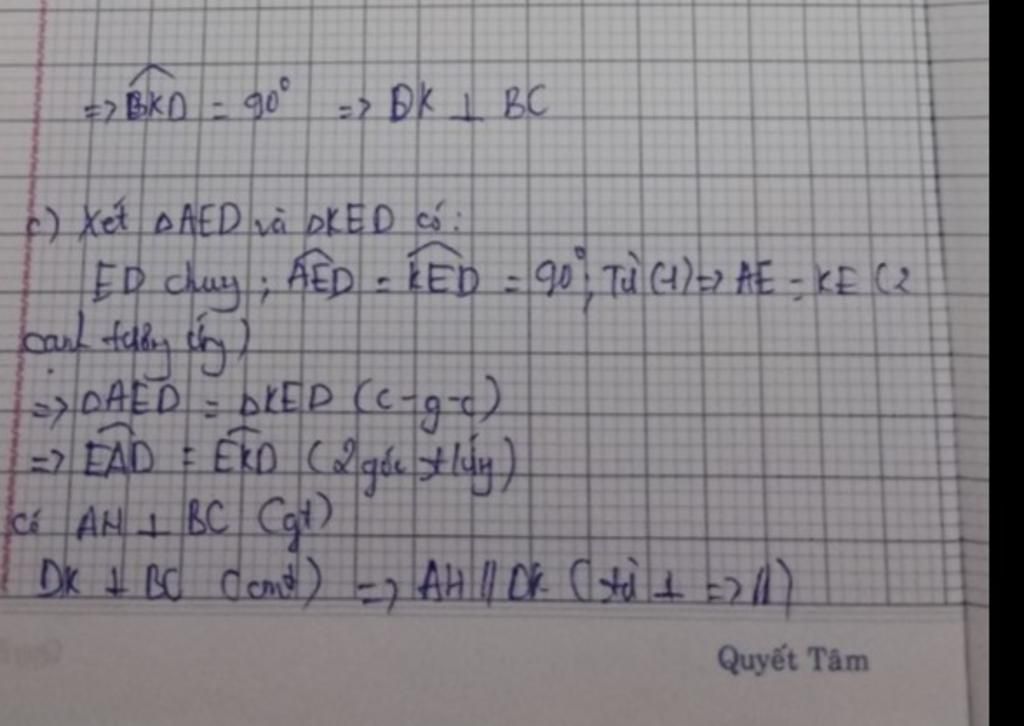 => BKD = 90° => DK ⊥ BC
c) Xét ΔAED và ΔKED có:
ED chung; AED = KED = 90°; Từ (1) => AE = KE (2
cạnh tương ứng)
=> ΔAED = ΔKED (c-g-c)
=> EAD = EKD (2 góc tứ)
Có AH ⊥ BC (gt)
DK ⊥ BC (cmt) => AH // DK (từ ⊥ => //)
Quyết Tâm